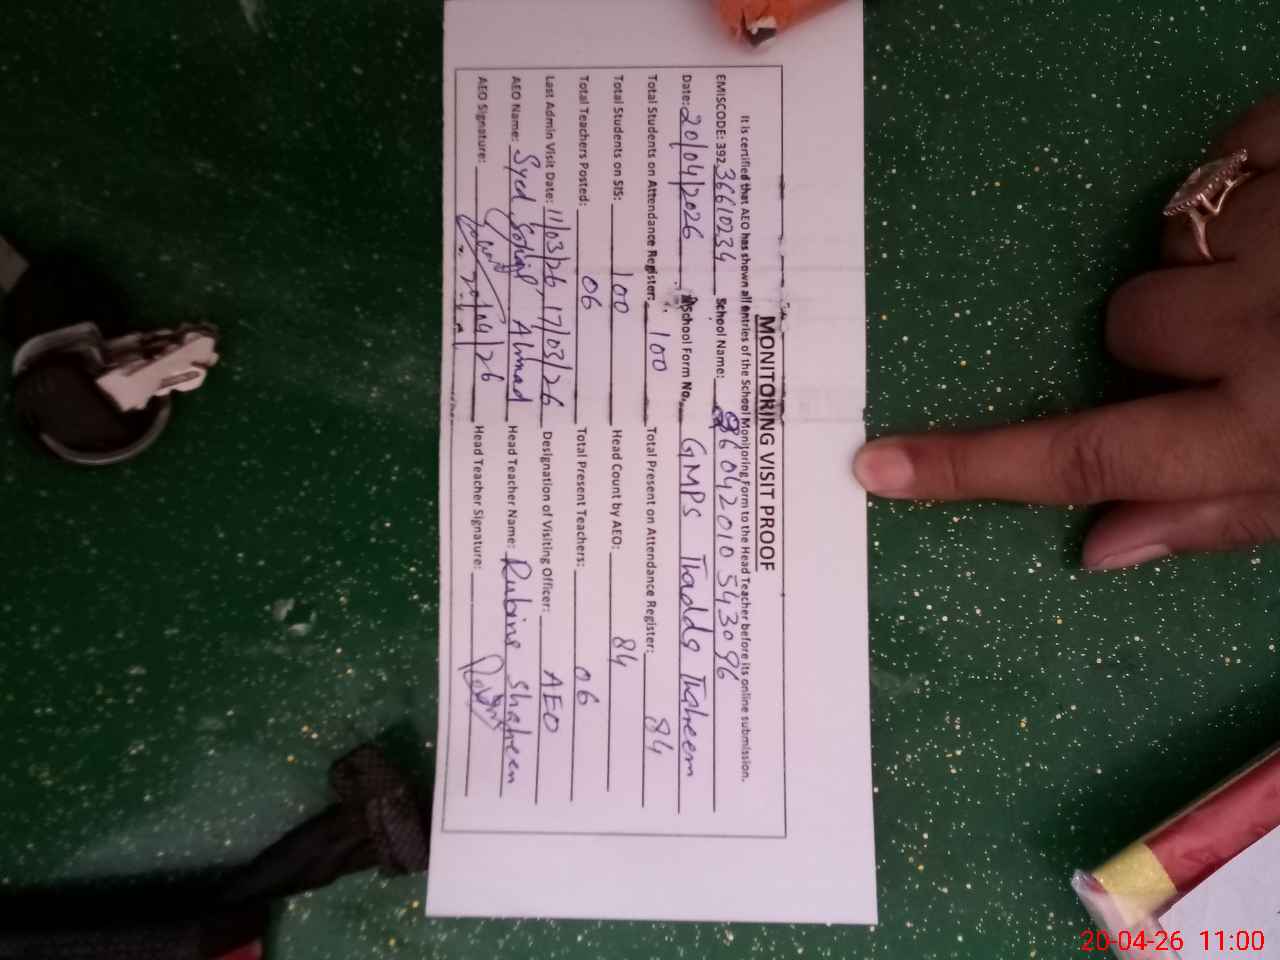 MONITORING VISIT PROOF
It is certified that AEO has shown all entries of the School Monitoring Form to the Head Teacher before its online submission.
EMISCODE: 392 36610234 School Name: 86042010543096
Date: 20/04/2026 School Form No. GMPS Thadda Thaheem
Total Students on Attendance Register: 100 Total Present on Attendance Register: 84
Total Students on SIS: 100 Head Count by AEO: 84
Total Teachers Posted: 06 Total Present Teachers: 06
Last Admin Visit Date: 11/03/26, 17/03/26 Designation of Visiting Officer: AEO
AEO Name: Syed Sohail Ahmad Head Teacher Name: Rubina Shaheen
AEO Signature: 20/04/26 Head Teacher Signature:
20-04-26 11:00